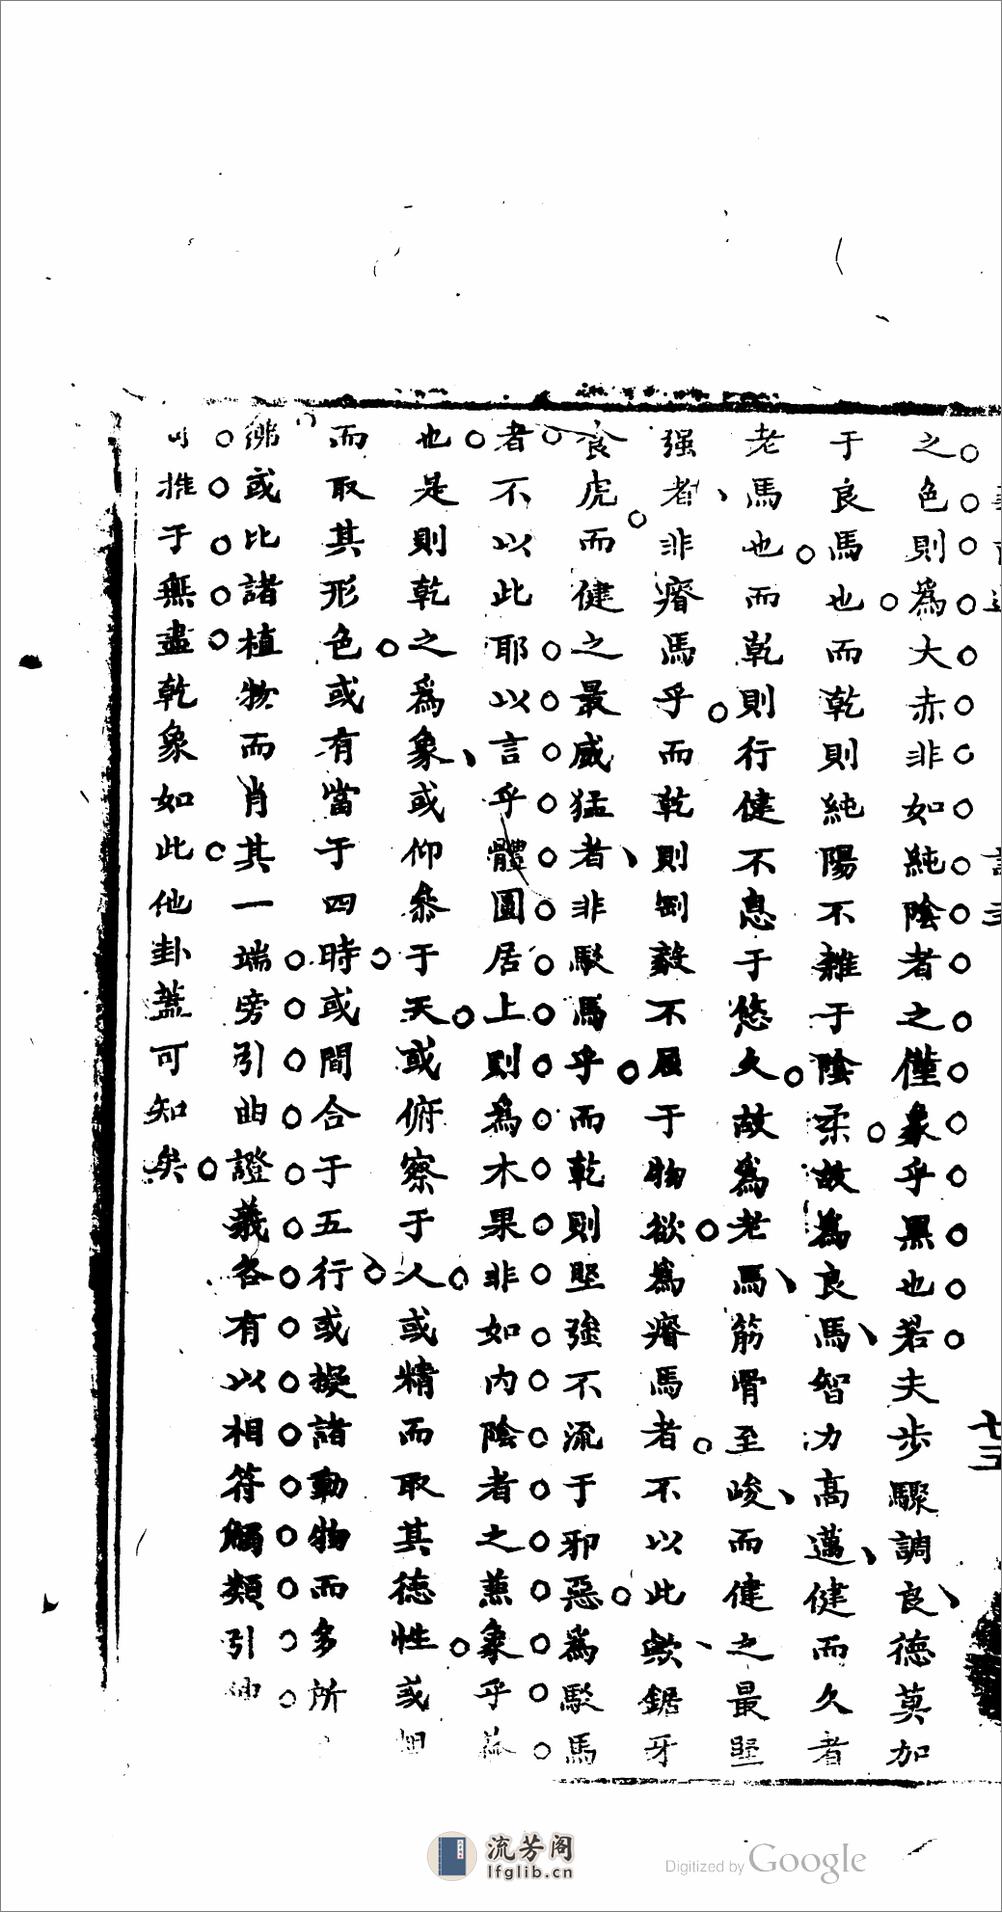 之色則爲大赤非如純陰者之僅象乎黑也若夫步驟調良德莫加
于良馬也而乾則純陽不雜于陰柔故爲良馬智力高邁健而久者
老馬也而乾則行健不息于悠久故爲老馬筋骨至峻而健之最堅
强者非瘠馬乎而乾則剛毅不屈于物欲爲瘠馬者不以此歟鋸牙
食虎而健之最威猛者非駁馬乎而乾則堅強不流于邪惡爲駁馬
者不以此耶以言乎體圓居上則爲木果非如内陰者之蔗象乎
也是則乾之爲象或仰參于天或俯察于人或精而取其德性或
而取其形色或有當于四時或間合于五行或擬諸動物而多所
彿或比諸植物而肖其一端旁引曲證義各有以相符觸類引
可推于無盡乾象如此他卦蓋可知矣
十三
流芳阁
lfglib.cn
Digitized by Google